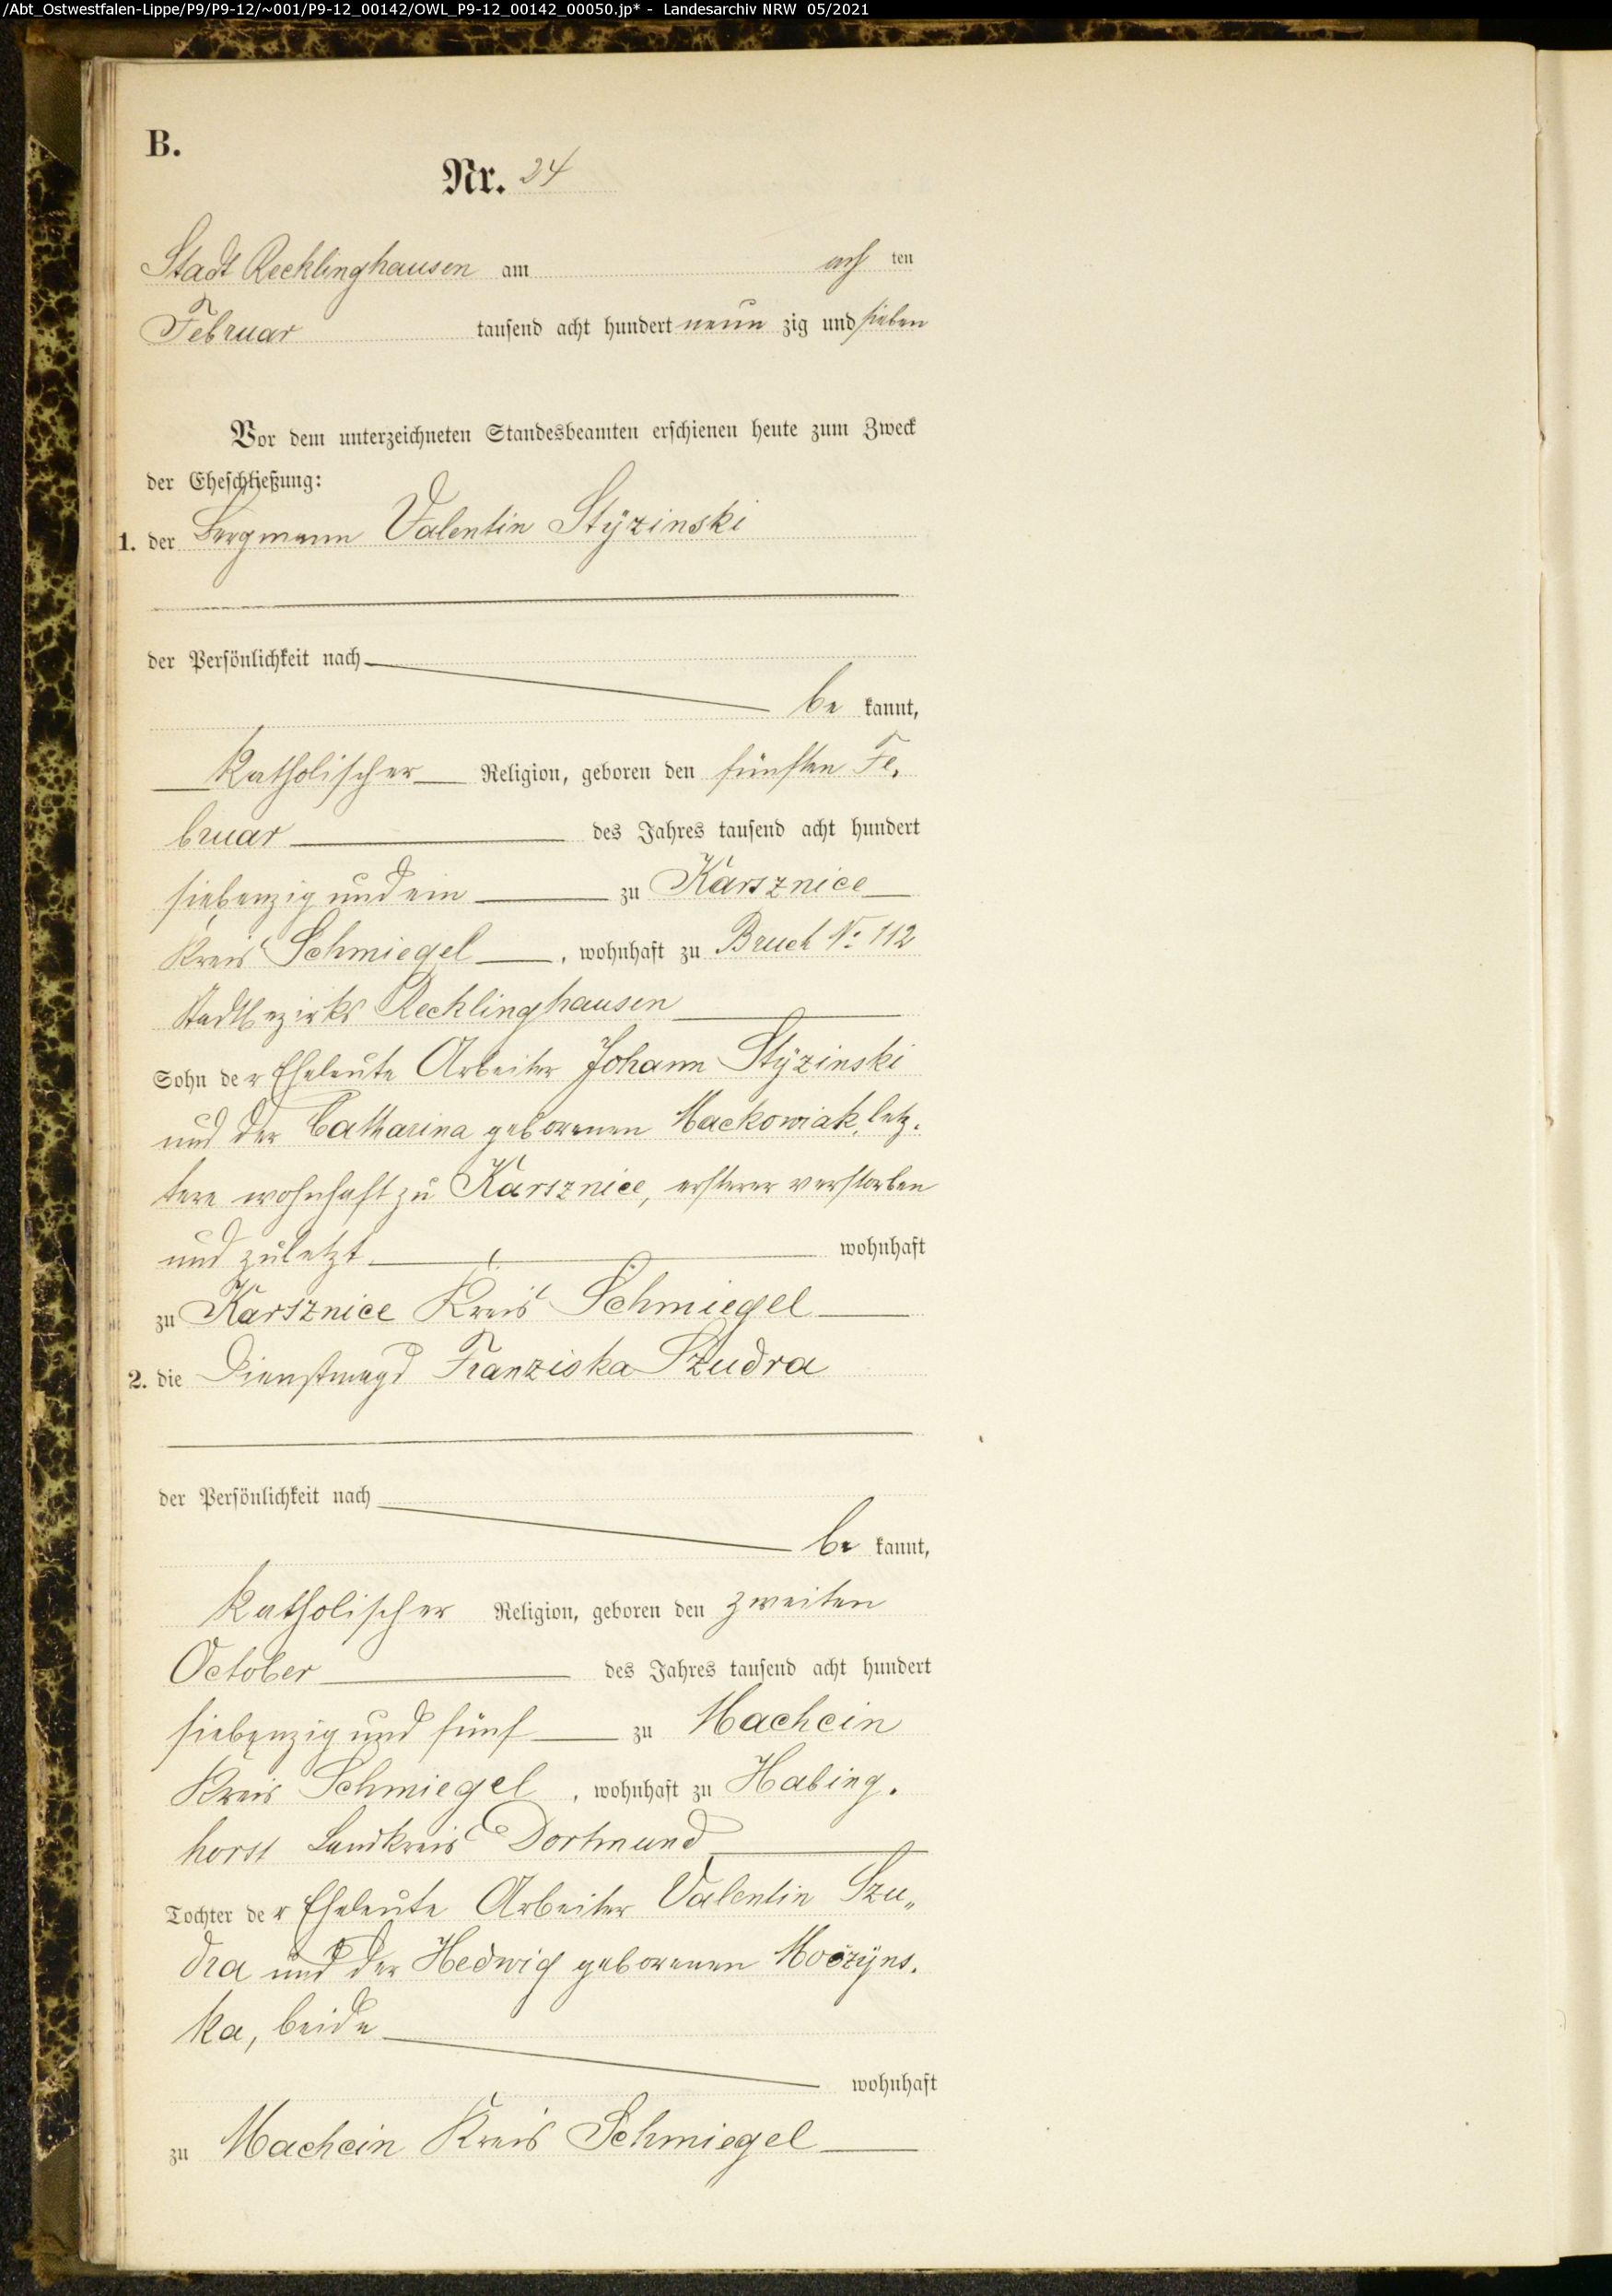 /Abt_Ostwestfalen-Lippe/P9/P9-12/~001/P9-12_00142/OWL_P9-12_00142_00050.jp* - Landesarchiv NRW 05/2021
B.
Nr. 24
Stadt Recklinghausen am ach ten
Februar tausend acht hundert neun zig und sieben
Vor dem unterzeichneten Standesbeamten erschienen heute zum Zweck
der Eheschließung:
1. der Bergmann Valentin Stÿzinski
der Persönlichkeit nach
be kannt,
katholischer Religion, geboren den fünften Fe-
bruar des Jahres tausend acht hundert
siebenzig und ein zu Karsznice
Kreis Schmiegel, wohnhaft zu Bruch No 112
Stadtbezirks Recklinghausen
Sohn der Eheleute Arbeiter Johann Stÿzinski
und der Catharina geborenen Mackowiak, letz-
tere wohnhaft zu Karsznice, ersterer verstorben
und zuletzt wohnhaft
zu Karsznice Kreis Schmiegel
2. die Dienstmagd Franziska Szudra
der Persönlichkeit nach
be kannt,
katholischer Religion, geboren den zweiten
October des Jahres tausend acht hundert
siebenzig und fünf zu Machcin
Kreis Schmiegel, wohnhaft zu Habing-
horst Landkreis Dortmund
Tochter der Eheleute Arbeiter Valentin Szu-
dra und der Hedwig geborenen Moczÿns-
ka, beide
wohnhaft
zu Machcin Kreis Schmiegel